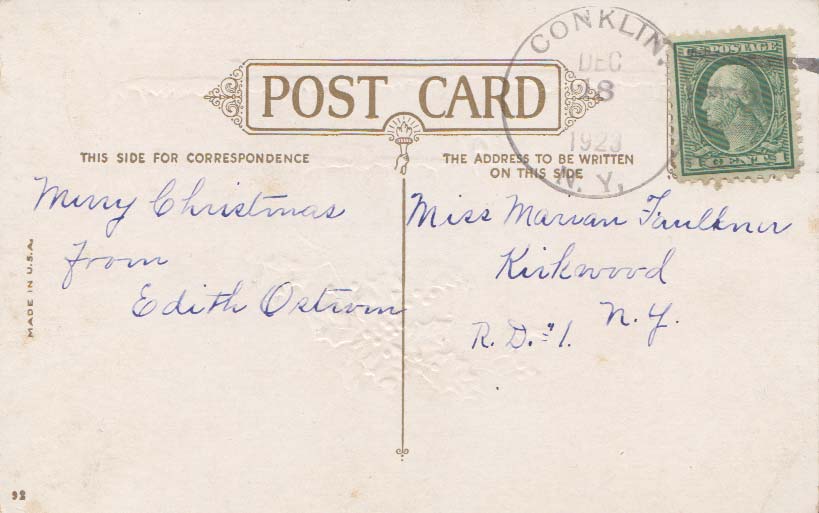 POST CARD
THIS SIDE FOR CORRESPONDENCE
THE ADDRESS TO BE WRITTEN
ON THIS SIDE
CONKLIN,
DEC
18
1923
N. Y.
U.S. POSTAGE
CENTS
Merry Christmas
from
Edith Ostrom
Miss Marian Faulkner
Kirkwood
N.Y.
R. D. #1.
MADE IN U.S.A.
92